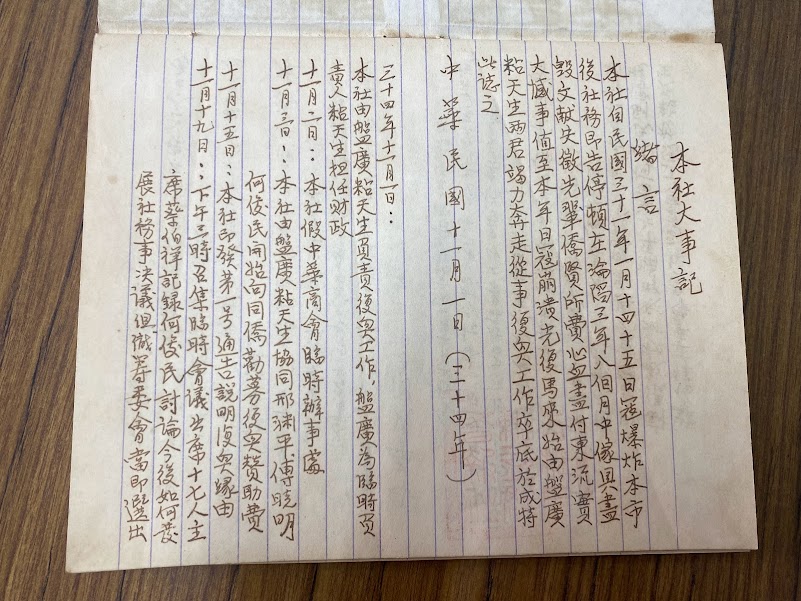 本社大事記
緒言
本社自民國三十一年一月十四十五日寇爆炸本市
後社務即告停頓在淪陷三年八個月中傢具盡
毀文献失徵先輩僑賢所費心血盡付東流實
大憾事值至本年日寇崩潰光復馬來始由盤廣
粘天生兩君竭力奔走從事復興工作卒底於成特
此誌之
中華民國十一月一日(三十四年)
三十四年十一月一日:
本社由盤廣粘天生負責復興工作,盤廣為臨時負
責人粘天生担任財政
十一月二日:本社假中華商會臨時辦事處
十一月三日:本社由盤廣粘天生協同邢渊平傅曉明
何俊民開始向同僑勸募復興贊助費
十一月十五日:本社印發第一号通告説明復興緣由
十一月十九日:下午三時召集臨時會議出席十七人主
席蔡伯祥記録何俊民討論今後如何發
展社務事決議組織籌委會當即選出